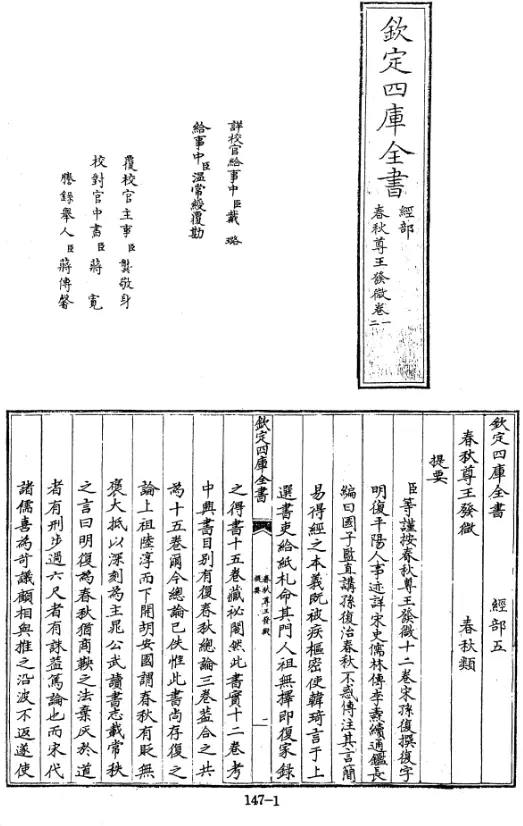 欽定四庫全書
經部
春秋尊王發微卷一
二
詳校官給事中臣戴璐
給事中臣溫常綬覆勘
覆校官主事臣龔敬身
校對官中書臣蔣寬
謄錄舉人臣蔣傳馨
欽定四庫全書 經部五
春秋尊王發微 春秋類
提要
臣等謹按春秋尊王發微十二卷宋孫復撰復字
明復平陽人事迹詳宋史儒林傳李燾續通鑑長
編曰國子監直講孫復治春秋不惑傳注其言簡
易得經之本義既被疾樞密使韓琦言于上
選書吏給紙札命其門人祖無擇即復家錄
欽定四庫全書
春秋尊王發微
提要
一
之得書十五卷藏祕閣然此書實十二卷考
中興書目別有復春秋總論三卷蓋合之共
為十五卷爾今總論已佚惟此書尚存復之
論上祖陸淳而下開胡安國謂春秋有貶無
褒大抵以深刻為主晁公武讀書志載常秩
之言曰明復為春秋猶商鞅之法棄灰於道
者有刑步過六尺者有誅蓋篤論也而宋代
諸儒喜為苛議顧相與推之沿波不返遂使
147-1